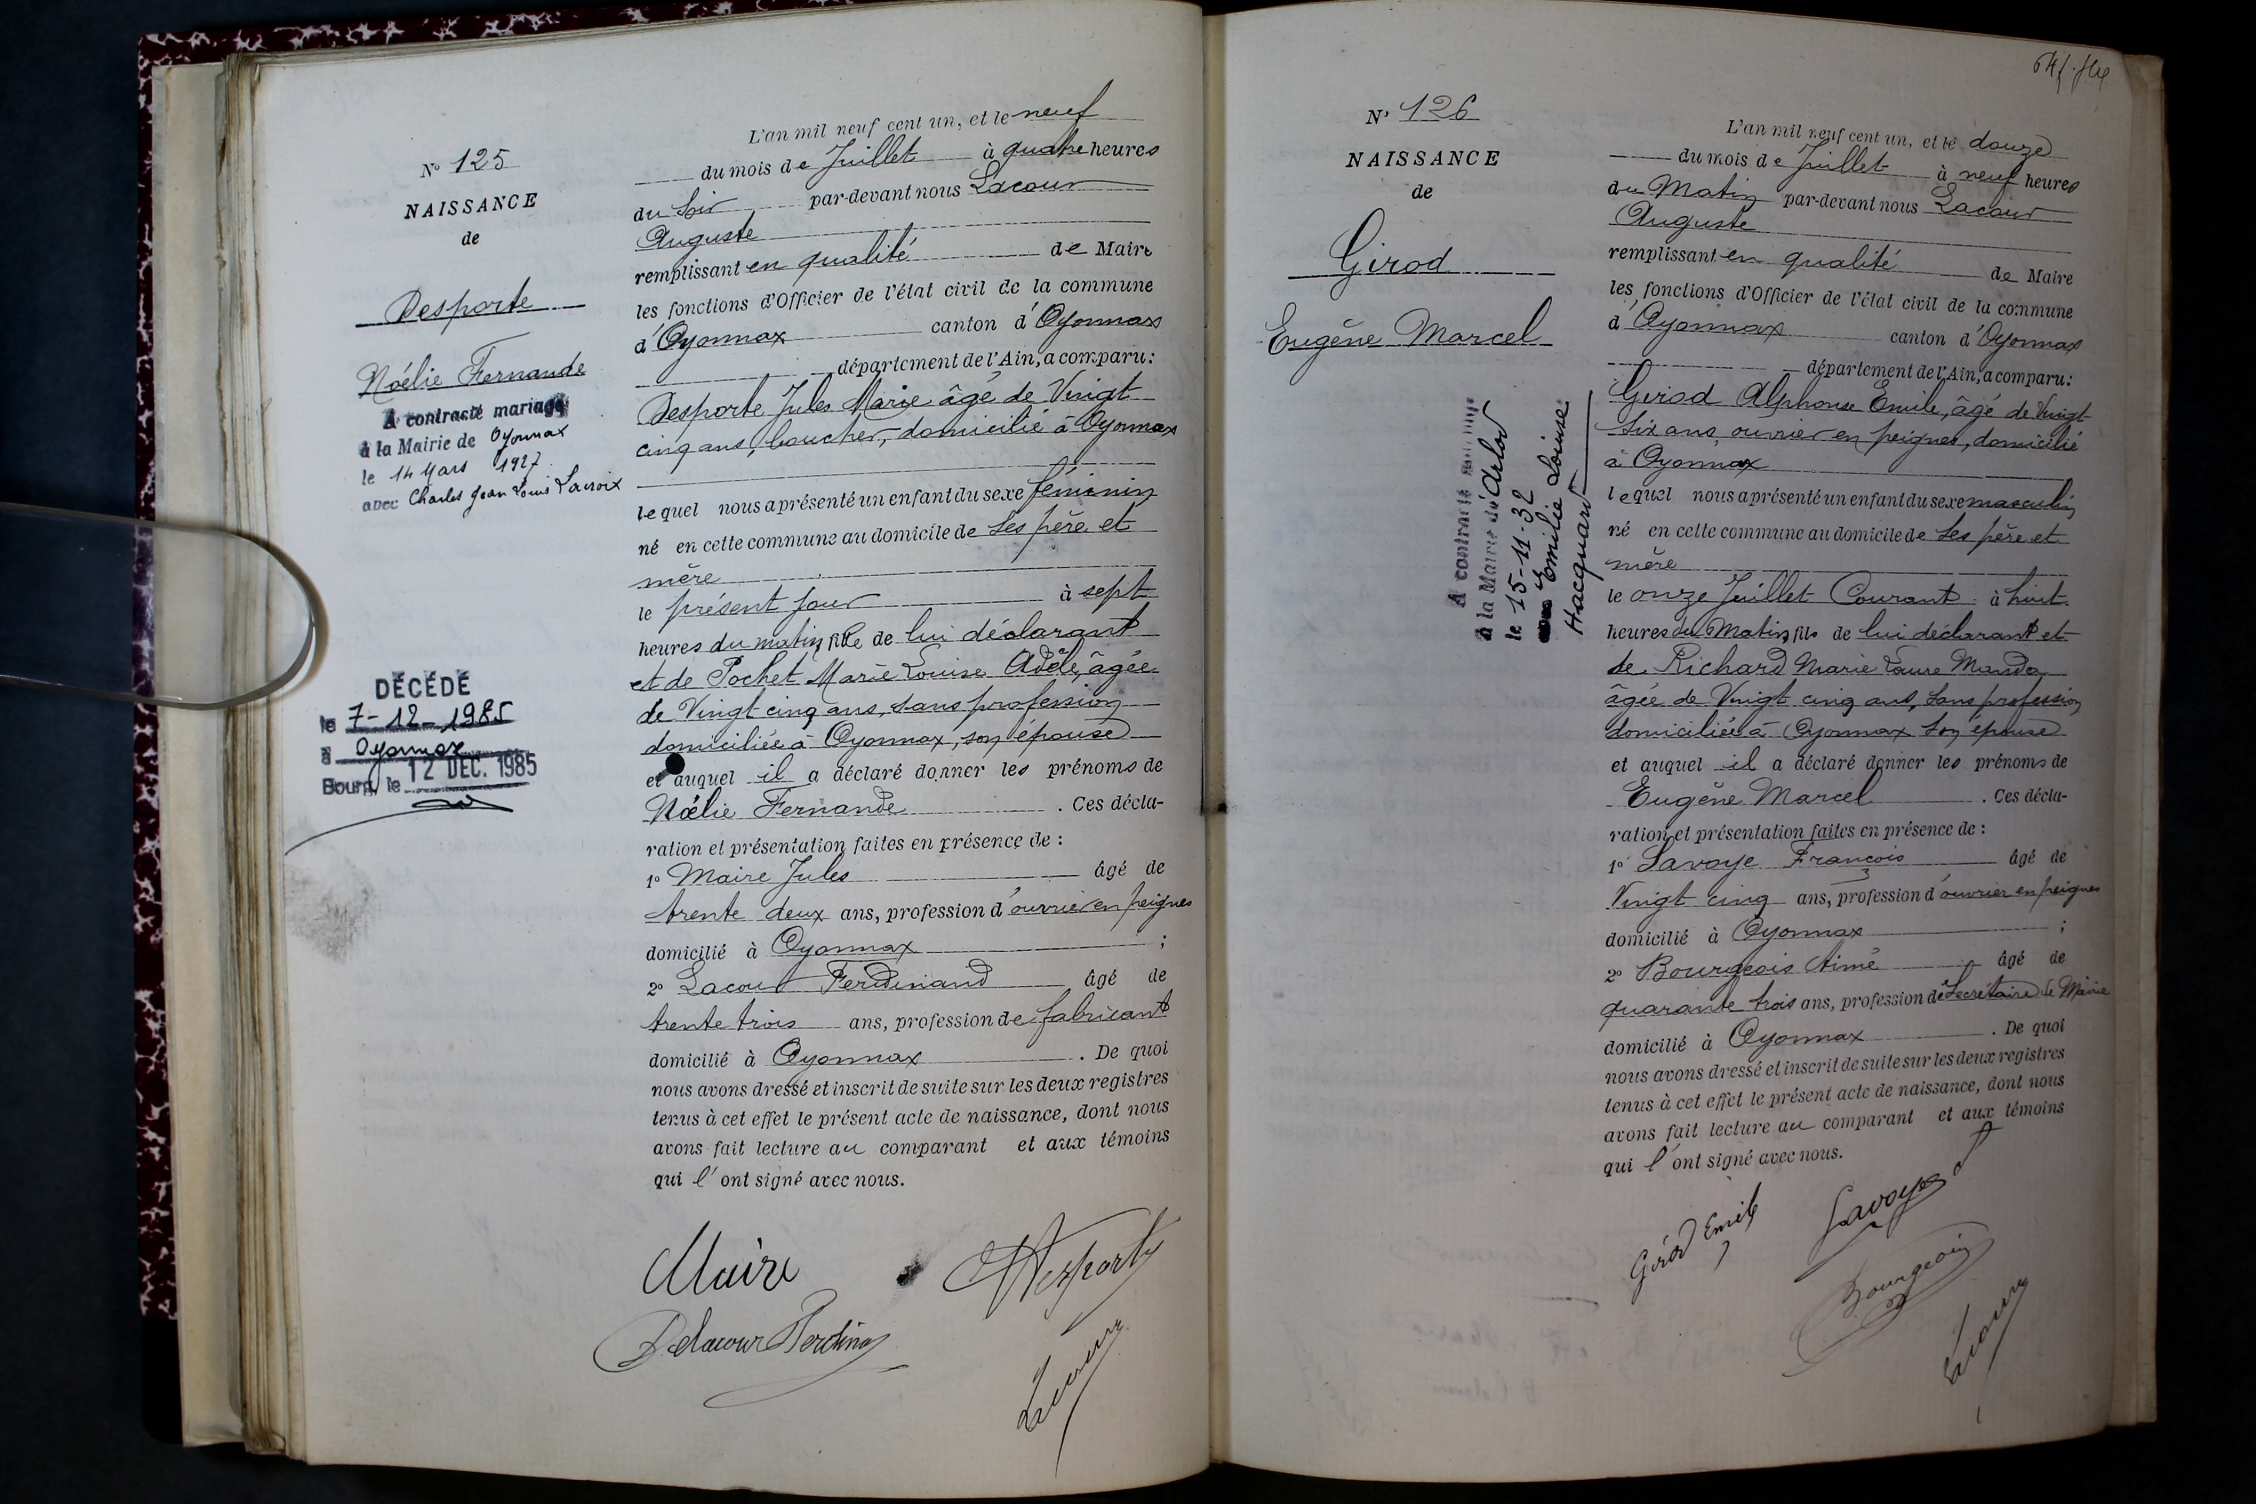 N° 125
NAISSANCE
de
Desporte
Noélie Fernande
A contracté mariage
à la Mairie de Oyonnax
le 14 Mars 1927
avec Charles Jean Louis Lacroix
DÉCÉDÉ
le 7-12-1985
à Oyonnax
Bourg, le 12 DEC. 1985
L'an mil neuf cent un, et le neuf
du mois de Juillet à quatre heures
du Soir par-devant nous Lacour
Auguste
remplissant en qualité de Maire
les fonctions d'Officier de l'état civil de la commune
d'Oyonnax canton d'Oyonnax
département de l'Ain, a comparu:
Desporte Jules Marie âgé de Vingt
cinq ans, boucher, domicilié à Oyonnax
lequel nous a présenté un enfant du sexe féminin
né en cette commune au domicile de ses père et
mère
le présent jour à sept
heures du matin fille de lui déclarant
et de Pochet Marie Louise Adèle, âgée
de Vingt cinq ans, sans profession
domiciliée à Oyonnax, son épouse
et auquel il a déclaré donner les prénoms de
Noëlie Fernande. Ces décla-
ration et présentation faites en présence de :
1° Maire Jules âgé de
trente deux ans, profession d'ouvrier en peignes
domicilié à Oyonnax ;
2° Lacour Ferdinand âgé de
trente trois ans, profession de fabricant
domicilié à Oyonnax. De quoi
nous avons dressé et inscrit de suite sur les deux registres
tenus à cet effet le présent acte de naissance, dont nous
avons fait lecture au comparant et aux témoins
qui l'ont signé avec nous.
Maire
Desporte
Delacour Ferdinand
Lacour
N° 126
NAISSANCE
de
Girod
Eugène Marcel
A contracté mariage
à la Mairie d'Arlod
le 15-11-32
avec Emilie Louise
Hacquard
L'an mil neuf cent un, et le douze
du mois de Juillet à neuf heures
du Matin par-devant nous Lacour
Auguste
remplissant en qualité de Maire
les fonctions d'Officier de l'état civil de la commune
d'Oyonnax canton d'Oyonnax
département de l'Ain, a comparu:
Girod Alphonse Emile, âgé de Vingt
six ans, ouvrier en peignes, domicilié
à Oyonnax
lequel nous a présenté un enfant du sexe masculin
né en cette commune au domicile de ses père et
mère
le onze Juillet Courant à huit
heures du Matin fils de lui déclarant et
de Richard Marie Laure Manda
âgée de Vingt cinq ans, sans profession
domiciliée à Oyonnax son épouse
et auquel il a déclaré donner les prénoms de
Eugène Marcel. Ces décla-
ration et présentation faites en présence de :
1° Savoye François âgé de
Vingt cinq ans, profession d'ouvrier en peignes
domicilié à Oyonnax ;
2° Bourgeois Aimé âgé de
quarante trois ans, profession de Secrétaire de Mairie
domicilié à Oyonnax. De quoi
nous avons dressé et inscrit de suite sur les deux registres
tenus à cet effet le présent acte de naissance, dont nous
avons fait lecture au comparant et aux témoins
qui l'ont signé avec nous.
Girod Emile
Savoye
Bourgeois
Lacour